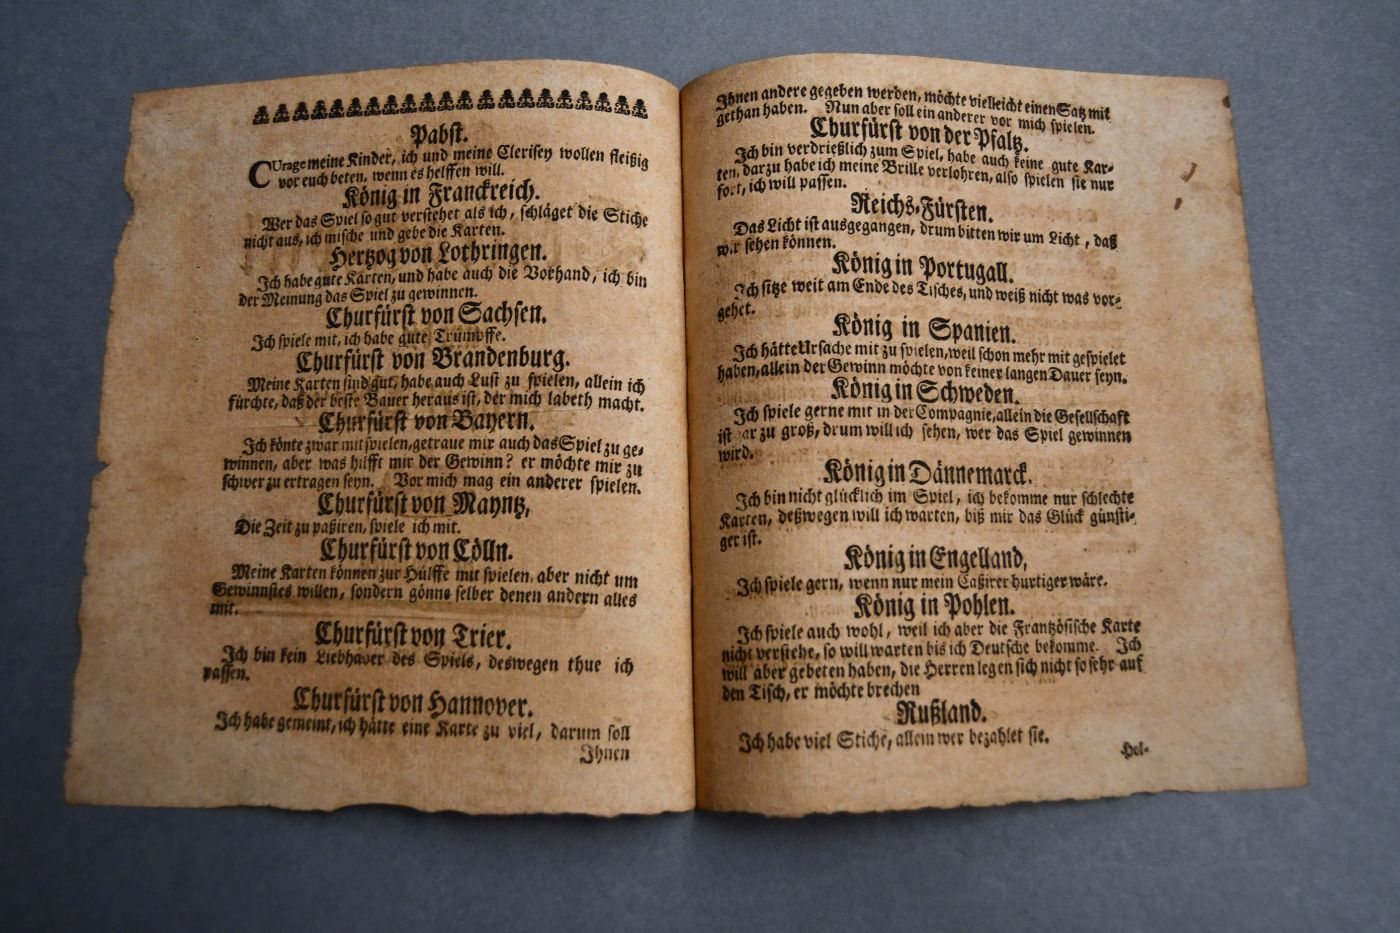 Pabst.
CUrage meine Kinder, ich und meine Clerisey wollen fleißig
vor euch beten, wenn es helffen will.
König in Franckreich.
Wer das Spiel so gut verstehet als ich, schläget die Stiche
nicht aus, ich mische und gebe die Karten.
Hertzog von Lothringen.
Ich habe gute Karten, und habe auch die Vorhand, ich bin
der Meinung das Spiel zu gewinnen.
Churfürst von Sachsen.
Ich spiele mit, ich habe gute Trümpffe.
Churfürst von Brandenburg.
Meine Karten sind gut, habe auch Lust zu spielen, allein ich
fürchte, daß der beste Bauer heraus ist, der mich labeth macht.
Churfürst von Bayern.
Ich könte zwar mit spielen, getraue mir auch das Spiel zu ge-
winnen, aber was hilfft mir der Gewinn? er möchte mir zu
schwer zu ertragen seyn. Vor mich mag ein anderer spielen.
Churfürst von Mayntz,
Die Zeit zu paßiren, spiele ich mit.
Churfürst von Cölln.
Meine Karten können zur Hülffe mit spielen, aber nicht um
Gewinnstes willen, sondern gönne selber denen andern alles
mit.
Churfürst von Trier.
Ich bin kein Liebhaber des Spiels, deswegen thue ich
passen.
Churfürst von Hannover.
Ich habe gemeint, ich hätte eine Karte zu viel, darum soll
Ihnen
Ihnen andere gegeben werden, möchte vielleicht einen Satz mit
gethan haben. Nun aber soll ein anderer vor mich spielen.
Churfürst von der Pfaltz.
Ich bin verdrießlich zum Spiel, habe auch keine gute Kar-
ten, darzu habe ich meine Brille verlohren, also spielen sie nur
fort, ich will passen.
Reichs-Fürsten.
Das Licht ist ausgegangen, drum bitten wir um Licht, daß
wir sehen können.
König in Portugall.
Ich sitze weit am Ende des Tisches, und weiß nicht was vor-
gehet.
König in Spanien.
Ich hätte Ursache mit zu spielen, weil schon mehr mit gespielet
haben, allein der Gewinn möchte von keiner langen Dauer seyn.
König in Schweden.
Ich spiele gerne mit in der Compagnie, allein die Gesellschaft
ist gar zu groß, drum will ich sehen, wer das Spiel gewinnen
wird.
König in Dännemarck.
Ich bin nicht glücklich im Spiel, ich bekomme nur schlechte
Karten, deßwegen will ich warten, biß mir das Glück günsti-
ger ist.
König in Engelland,
Ich spiele gern, wenn nur mein Caßirer hurtiger wäre.
König in Pohlen.
Ich spiele auch wohl, weil ich aber die Frantzösische Karte
nicht verstehe, so will warten bis ich Deutsche bekomme. Ich
will aber gebeten haben, die Herren legen sich nicht so sehr auf
den Tisch, er möchte brechen
Rußland.
Ich habe viel Stiche, allein wer bezahlet sie.
Hol-